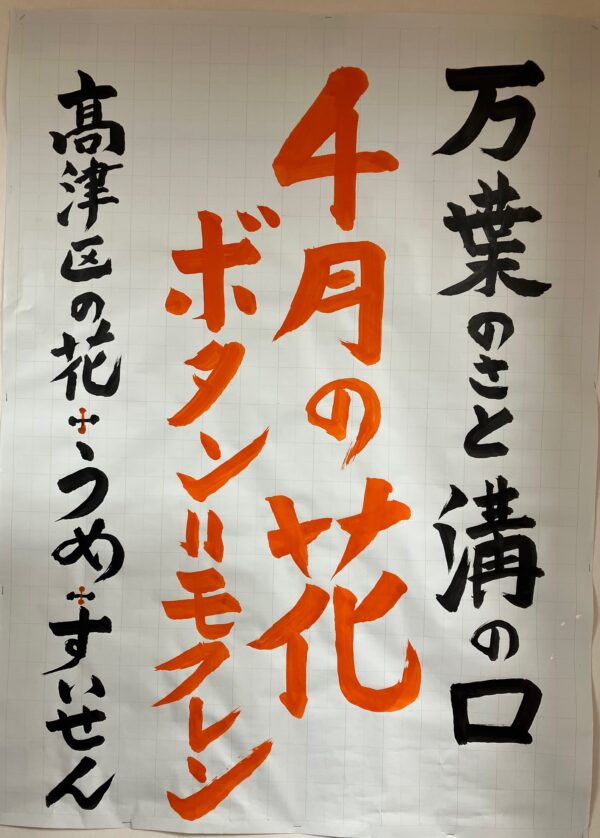 万葉のさと溝の口
4月の花
ボタン=モクレン
髙津区の花・うめ・すいせん